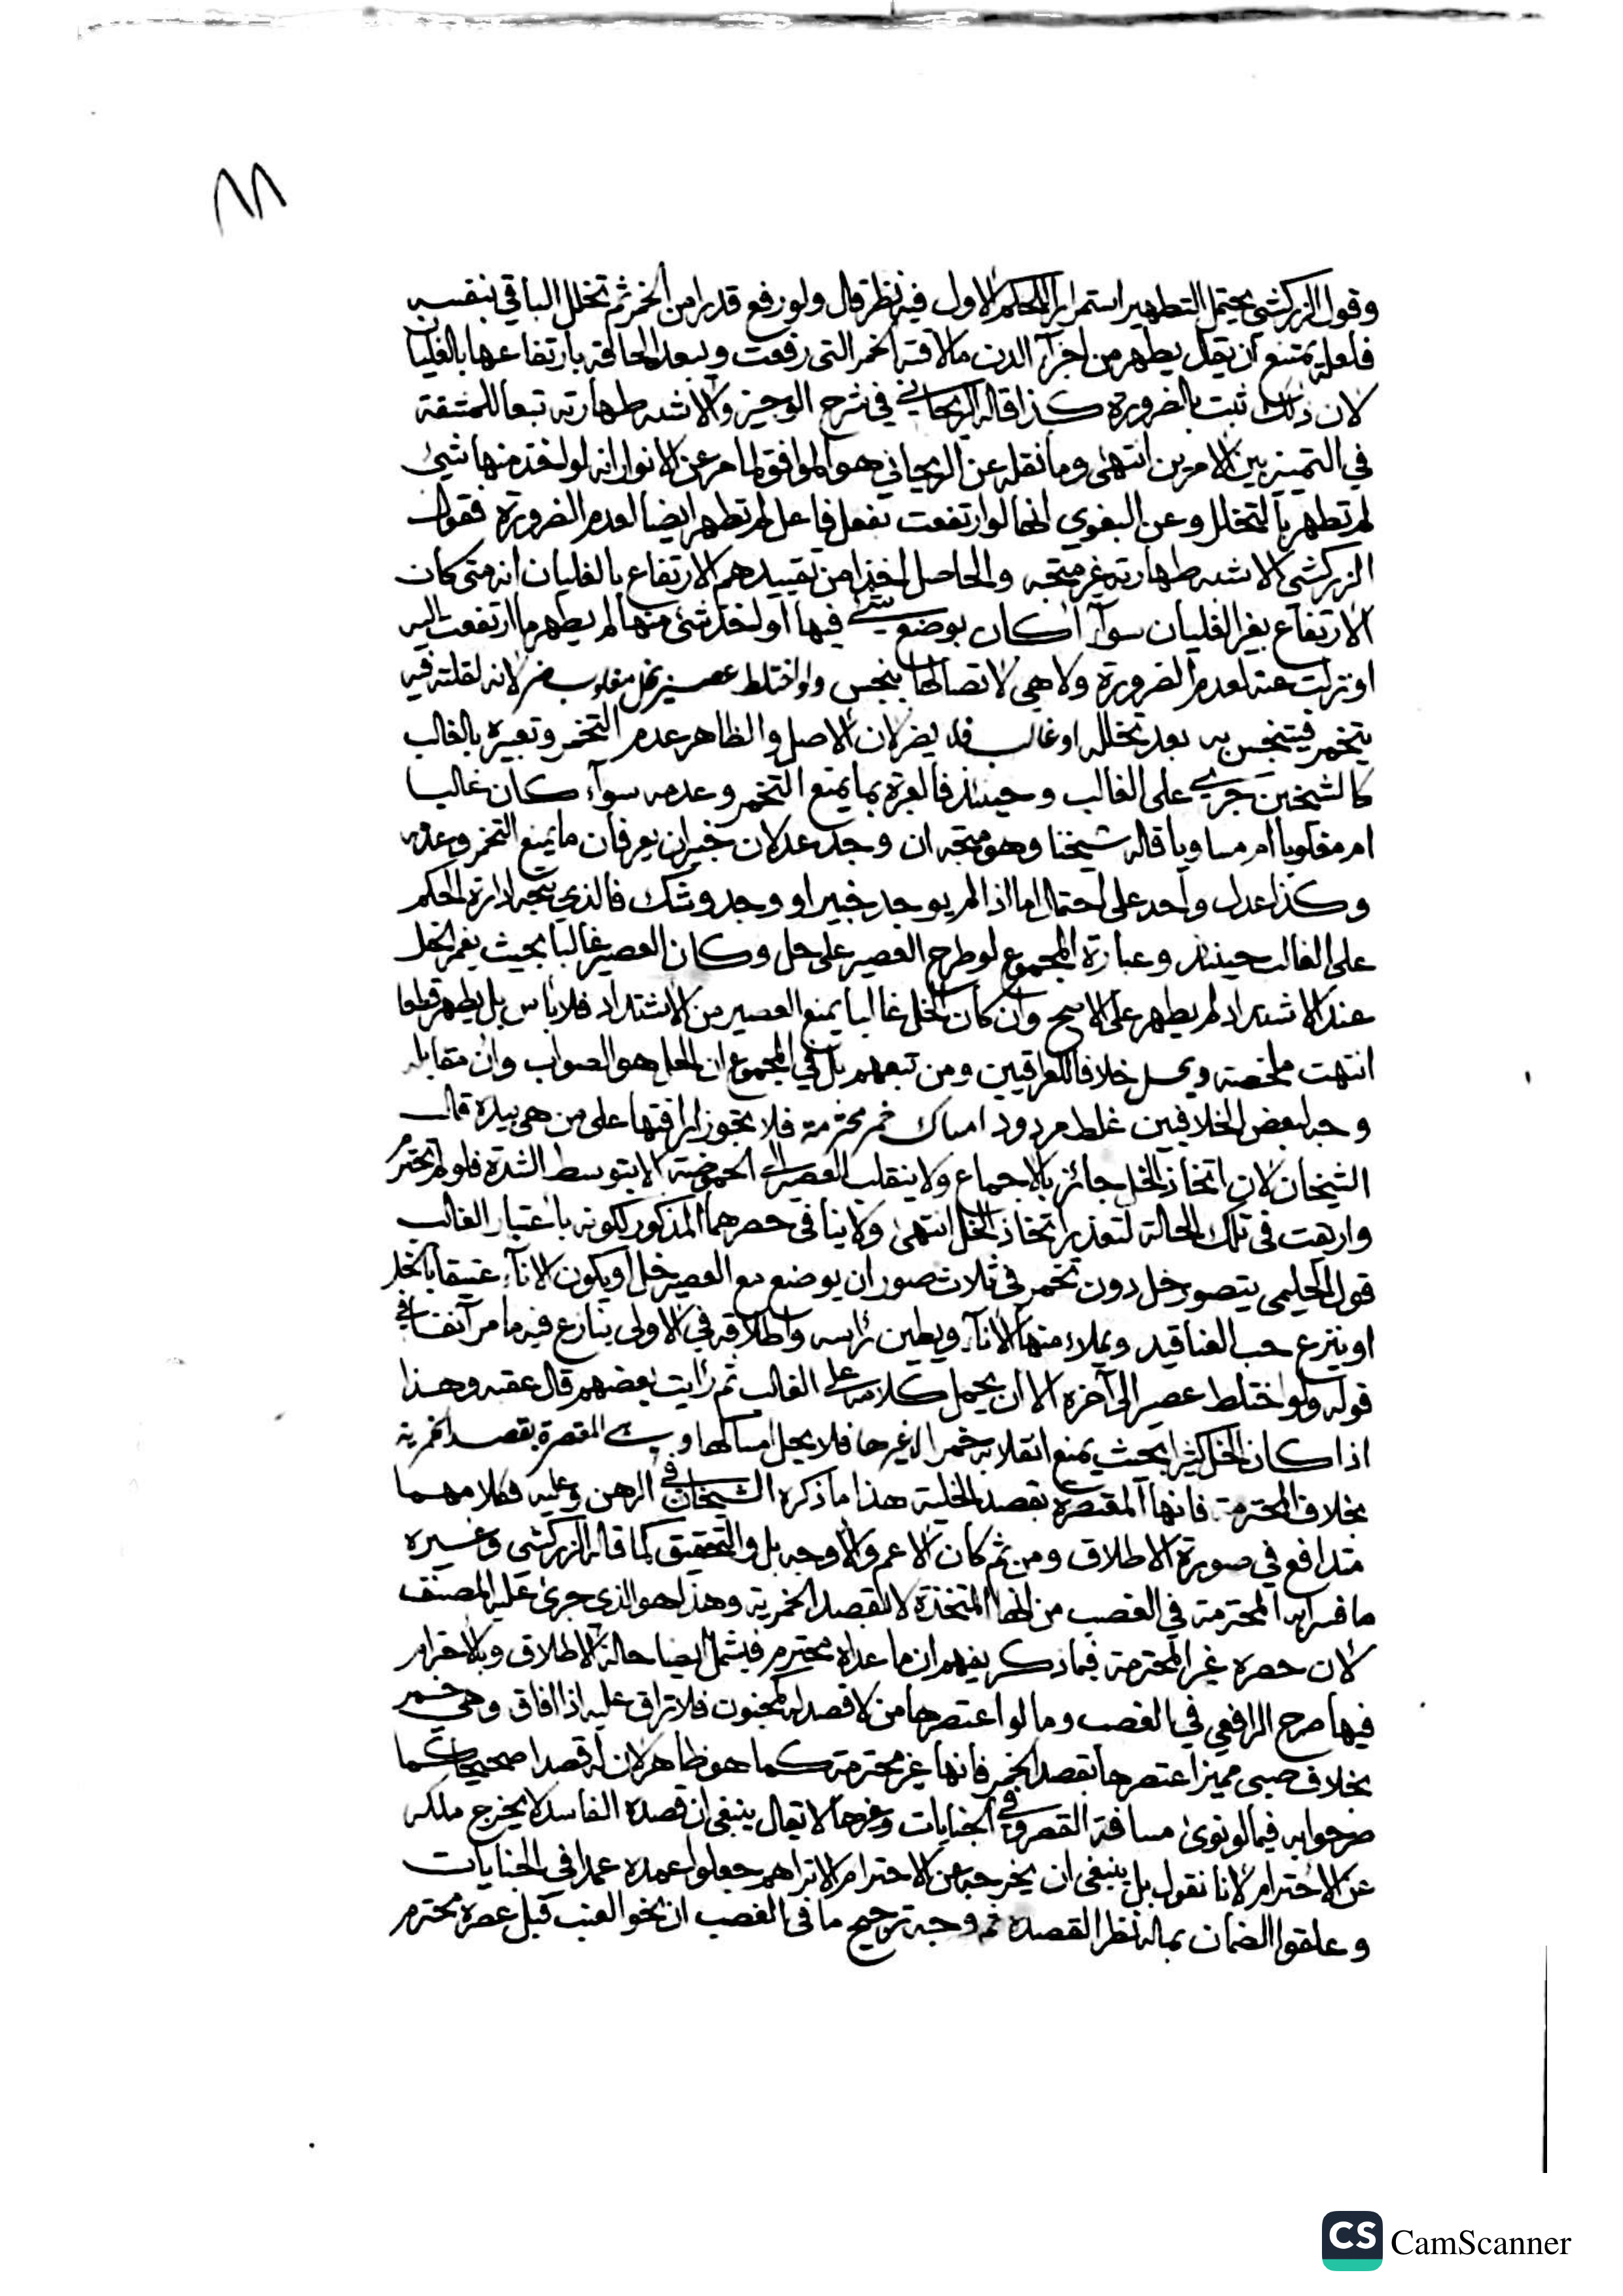 وقول الزركشي يحتمل التطهير استمرارا للحكم الاول فيه نظر قال ولو رفع قدرا من الخمر ثم تخلل الباقي بنفسه
فلعله يمتنع ان يقال يطهر من اجزآء الدن ما لاقته الخمر التي رفعت ويبعد الحاقه بارتفاعها بالغليان
لان ذلك ثبت بالضرورة كذا قاله الريحاني في شرح الوجيز والاشبه طهارته تبعا للمشقة
في التمييز بين الامرين انتهى وما نقله عن الريحاني هو الموافق لما مر عن الانوار انه لو اخذ منها شيئ
لم تطهر بالتخلل وعن البغوي انها لو ارتفعت بفعل فاعل لم تطهر ايضا لعدم الضرورة فقول
الزركشي الاشبه طهارته غير متجه والحاصل اخذا من تقييدهم الارتفاع بالغليان انه متى كان
الارتفاع بغير الغليان سوآء اكان بوضع شئ فيها او اخذ شئ منها لم يطهر ما ارتفعت اليه
او نزلت عنه لعدم الضرورة ولا هي لاتصالها بنجس ولو اختلط عصير بخل مغلوب ضر لانه لقلته فيه
يتخمر فيتنجس به بعد تخلله او غالب فلا يضر لان الاصل والظاهر عدم التخمر وتعبيره بالغالب
كالشيخين جري على الغالب وحينئذ فالعبرة بما يمنع التخمر وعدمه سوآء كان غالبا
ام مغلوبا ام مساويا قاله شيخنا وهو متجه ان وجد عدلان خبيران يعرفان ما يمنع التخمر وعدمه
وكذا عدل واحد على احتمال اما اذا لم يوجد خبير او وجد وشك فالذي يتجه ادارة الحكم
على الغالب حينئذ وعبارة المجموع لو طرح العصير على خل وكان العصير غالبا بحيث يغمر الخل
عند الاشتداد لم يطهر على الاصح وان كان الخل غالبا يمنع العصير من الاشتداد فلا باس بل يطهر قطعا
انتهت ملخصة ويحل خلافا للعراقيين ومن تبعهم بل في المجموع ان الحل هو الصواب وان مقابله
وجه لبعض الخلافيين غلط مردود امساك خمر محترمة فلا يجوز اراقتها على من هي بيده قال
الشيخان لان اتخاذ الخل جائز بالاجماع ولا ينقلب العصير الى الحموضة الا بتوسط الشدة فلو لم تحترم
واريقت في تلك الحالة لتعذر اتخاذ الخل انتهى ولا ينافي حصرهما المذكور لكونه باعتبار الغالب
قول الحليمي يتصور خل دون تخمر في ثلاث صور ان يوضع مع العصير خل او يكون الانآء عتيقا بالخل
او ينزع حب العناقيد ويملاء منها الانآء ويطين راسه واطلاقه في الاولى ينازع فيه ما مر آنفا في
قوله ولو اختلط عصير الى آخره الا ان يحمل كلامه على الغالب ثم رايت بعضهم قال عقبه وهذا
اذا كان الخل كثيرا بحيث يمنع انقلابه خمرا لا غيرها فلا يحل امساكها وهي المعتصرة بقصد الخمرية
بخلاف المحترمة فانها المعتصرة بقصد الخلية هذا ما ذكره الشيخان في الرهن وعليه فكلامهما
متدافع في صورة الاطلاق ومن ثم كان الاعم والاوجه بل والتحقيق كما قاله الزركشي وغيره
ما فسرا به المحترمة في الغصب من انها المتخذة لا لقصد الخمرية وهذا هو الذي جرى عليه المصنف
لان حصره غير المحترمة فيما ذكر يفهم ان ما عداه محترم فيشمل ايضا حالة الاطلاق وبالاحترام
فيها صرح الرافعي في الغصب وما لو اعتصرها من لا قصد له كمجنون فلا تراق عليه اذا افاق وهي خمر
بخلاف صبي مميز اعتصرها بقصد الخمر فانها غير محترمة كما هو ظاهر لان له قصدا صحيحا كما
صرحوا به فيما لو نوى مسافة القصر وفي الجنايات وغيرها لا يقال ينبغي ان قصده الفاسد لا يخرج ملكه
عن الاحترام لانا نقول بل ينبغي ان يخرجه عن الاحترام الا تراهم جعلوا عمده عمدا في الجنايات
وعلقوا الضمان بماله نظرا لقصده ثم وجه ترجيح ما في الغصب ان نحو العنب قبل عصره محترم
CS CamScanner